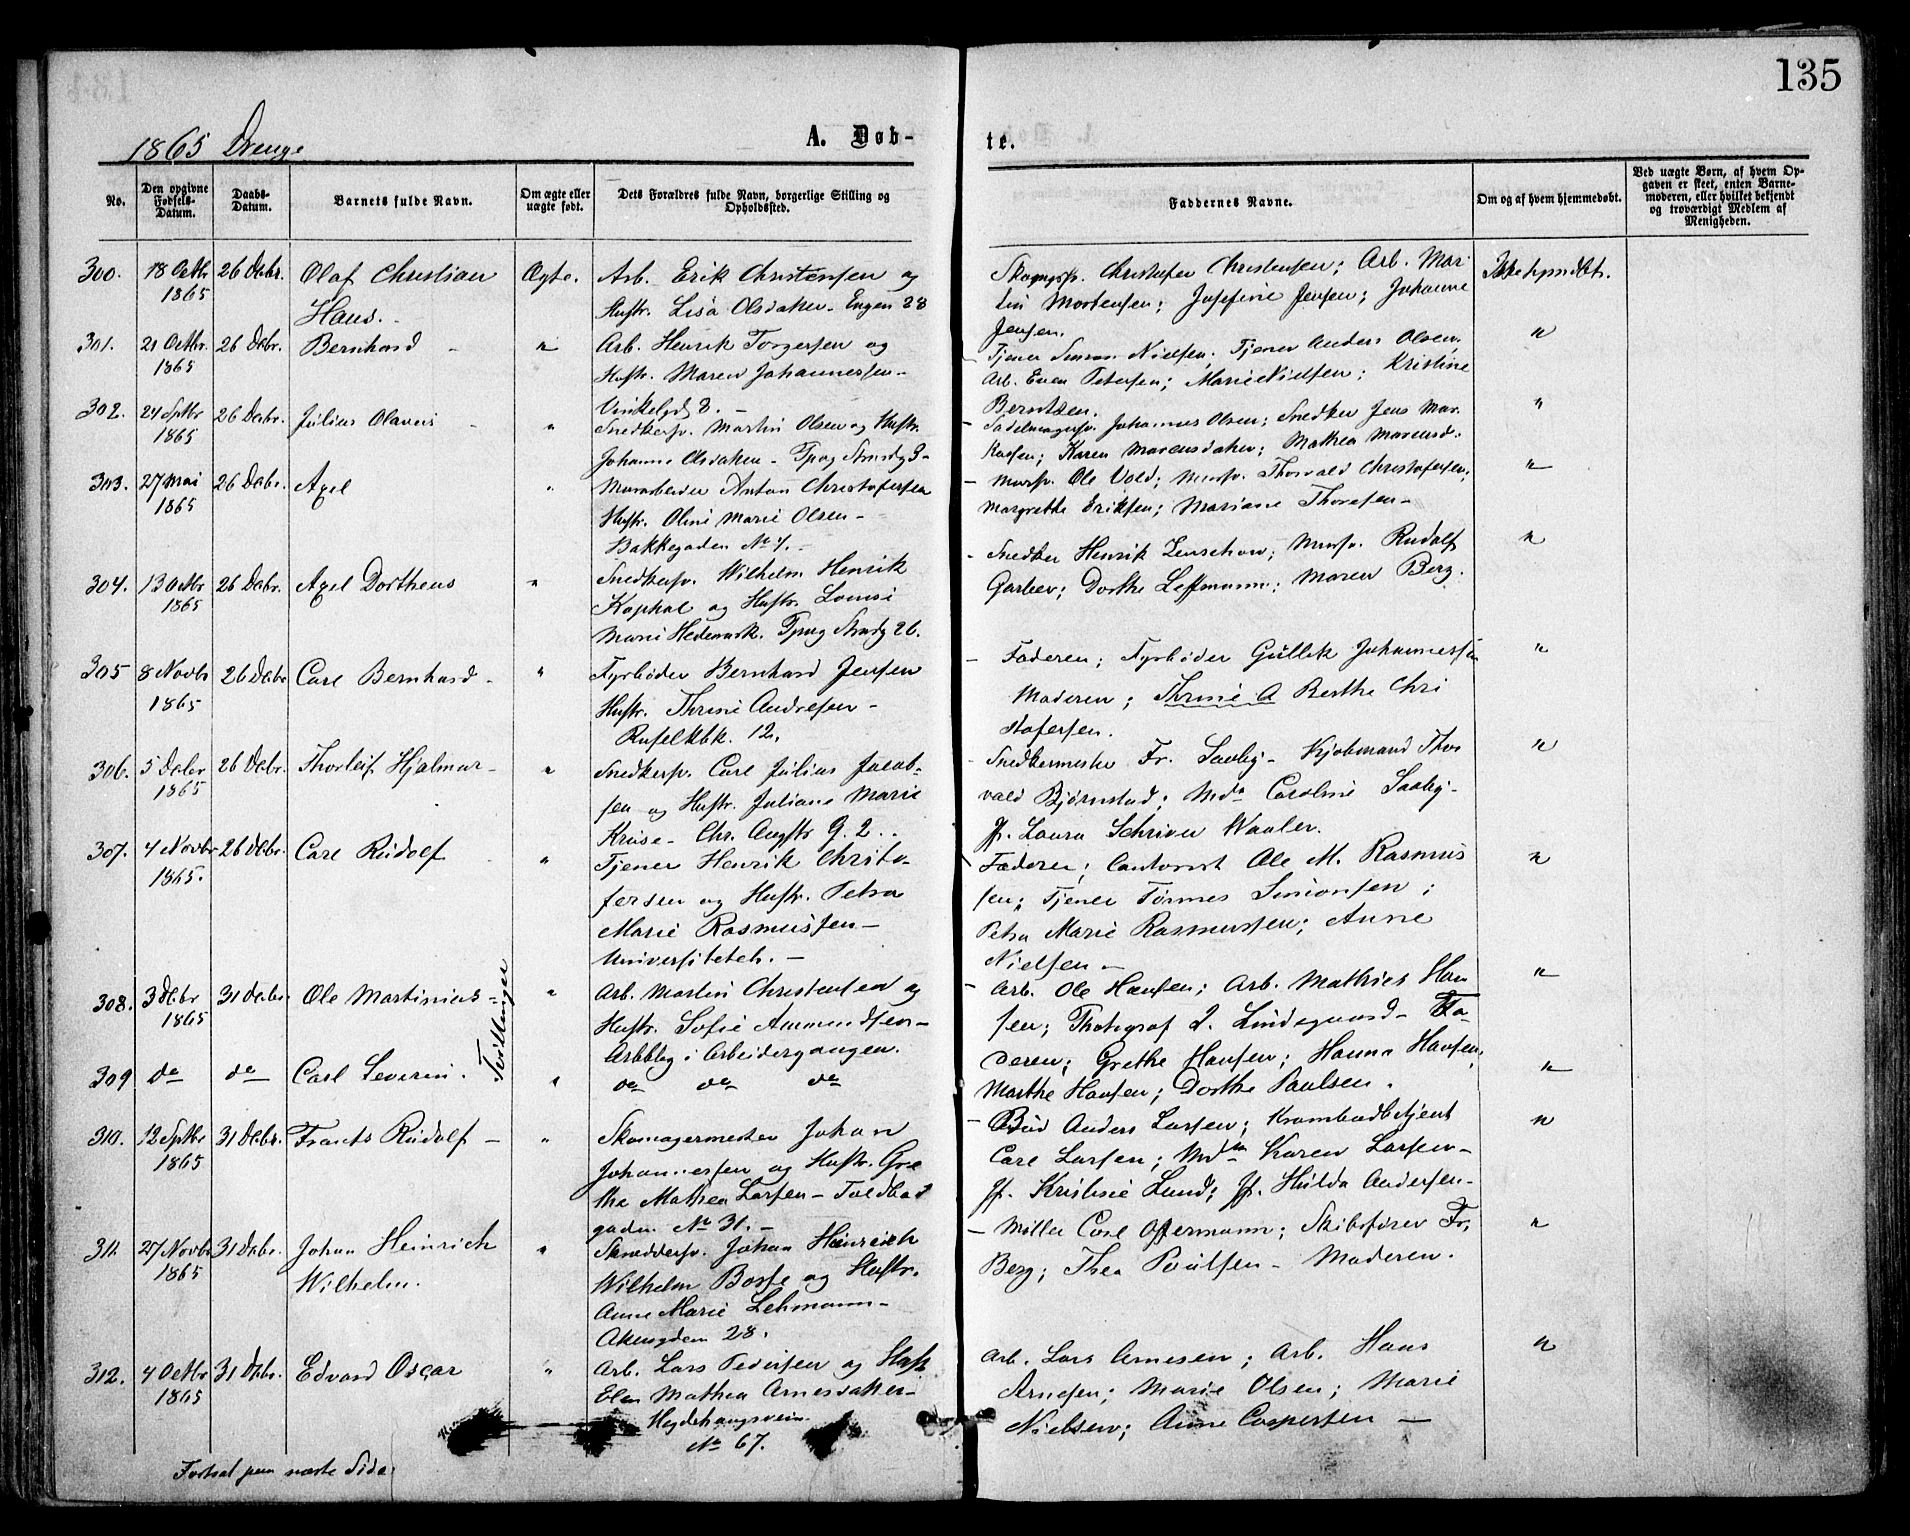 135
1865 Drenge
A. Døb-
te.
No.
Den opgivne Fødsels-Datum.
Daabs-Datum.
Barnets fulde Navn.
Om ægte eller uægte født.
Dets Forældres fulde Navn, borgerlige Stilling og Opholdssted.
Faddernes Navne.
Om og af hvem hjemmedøbt.
Ved uægte Børn, af hvem Op-
gaven er skeet, enten Barne-
moderen, eller hvilket bekjendt
og troværdigt Medlem af
Menigheden.
300. 18 Octbr 1865 26 Debr. Olaf Christian Hans. Ægte.
Arb. Erik Christensen og
Hustr. Lisa Olsdatter - Engen 28
Christofer Christensen; Arb. Mar-
tin Mortensen; Josefine Jensen; Johanne
Jensen.
301. 21 Octbr. 1865 26 Debr. Bernhard - "
Arb. Henrik Torgersen og
Hustr. Maren Johannessen -
Vinkelgd 8. -
Tjener Simon Nielsen; Tjener Anders Olsen,
Arb. Even Petersen; Marie Nielsen; Kristine
Berntsen. "
302. 24 Sptbr 1865 26 Debr. Julius Olavus - "
Snedkersv. Martin Olsen og Hustr.
Johanne Olsdatter - Tpag Strndg 3 -
- Sadelmagersv. Johannes Olsen; Snedker Jens Mar-
kusen; Karen Marcusdatter; Mathea Marcusd. "
303. 27 Mai 1865 26 Debr. Axel "
Murarbeider Anton Christofersen
Hustr. Oline Marie Olsen -
Bakkegaden No 7. -
- Mursv. Ole Vold; Mursv. Thorvald Christofersen;
Margrethe Eriksen; Mariane Thoresen - "
304. 13 Octbr 1865 26 Debr. Axel Dortheus "
Snedkersv. Wilhelm Henrik
Kophal og Hustr. Lovise
Marie Hedemark. Tpag Strndg 26.
- Snedker Henrik Lenschow; Mursv. Rudolf
Garber; Dorthe Leffmann; Maren Berg. "
305 8 Novbr 1865 26 Debr Carl Bernhard - "
Fyrbøder Bernhard Jensen
Hustr. Thrine Andresen -
Ruselkbk. 12.
- Faderen; Fyrbøder Gullik Johannessen
Moderen; Thrine A Berthe Chri
stofersen. "
306. 5 Debr 1865 26 Debr. Thorleif Hjalmar - "
Snedkersv. Carl Julius Jacob-
sen og Hustr. Juliane Marie
Kruse - Chr. Augstr G. 2. .
- Snedkermester Fr. Saxby - Kjøbmand Thor
vald Bjørnstad; Mda Caroline Saxby -
Jf. Laura Schriver Waaler. "
307. 4 Novbr 1865. 26 Debr. Carl Rudolf "
Tjener Henrik Christo-
fersen og Hustr. Petra
Marie Rasmussen -
Universitetet. -
- Faderen; Cantorist Ole M. Rasmus
sen; Tjener Tørmes Simonsen;
Petra Marie Rasmussen; Anne
Nielsen - "
308. 3 Debr 1865 31 Debr. Ole Martinius - Tvillinger "
Arb. Martin Christensen og
Hustr. Sofie Ammundsen -
Arbblg i Arbeidergangen.
- Arb. Ole Hansen; Arb. Mathies Han
sen; Photograf L. Lindegaard - Fa-
deren; Grethe Hansen; Hanna Hansen; "
309 do do Carl Severin. "
do do do
Marthe Hansen; Dorthe Paulsen. "
310. 12 Sptbr 1865 31 Debr. Frants Rudolf - "
Skomagermester Johan
Johannessen og Hustr. Gre
the Mathea Larsen - Toldbod
gaden No 31. -
- Bud Anders Larsen; Krambodbetjent
Carl Larsen; Mda Karen Larsen -
Jf. Kristine Lund; Jf. Hulda Andersen - "
311. 27 Novbr 1865 31 Debr. Johan Heinrich Wilhelm. "
Skreddersv. Johan Heinrich
Wilhelm Bosse og Hustr.
Anne Marie Lehmann -
Akersgden 28.
- Møller Carl Offermann; Skibsfører Fr.
Berg; Thea Poulsen - Moderen. "
312. 4 Octbr 1865 31 Debr. Edvard Oscar "
Arb. Lars Pedersen og Hustr
Elen Mathea Arnesdatter -
Hegdehaugsveien
No 67.
Arb. Lars Arnesen; Arb. Hans
Arnesen; Marie Olsen; Marie
Nielsen; Anne Caspersen - "
Fortsat paa næste Side